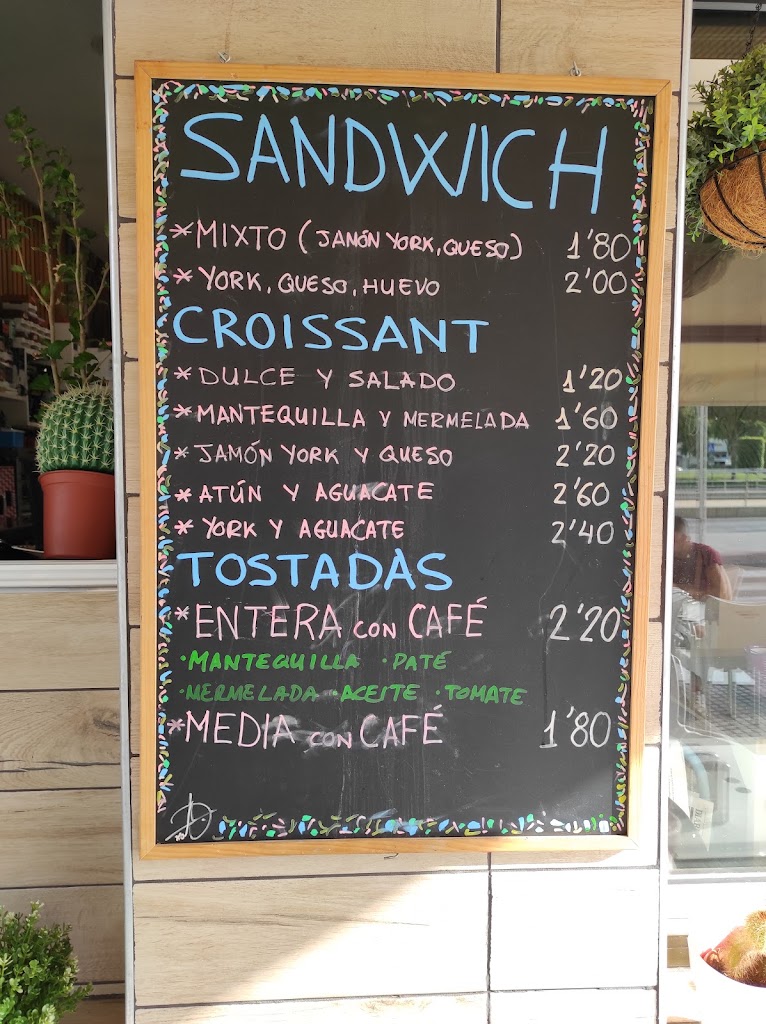 SANDWICH
*MIXTO (JAMÓN YORK, QUESO) 1'80
*YORK, QUESO, HUEVO 2'00
CROISSANT
*DULCE Y SALADO 1'20
*MANTEQUILLA Y MERMELADA 1'60
*JAMÓN YORK Y QUESO 2'20
*ATÚN Y AGUACATE 2'60
*YORK Y AGUACATE 2'40
TOSTADAS
*ENTERA CON CAFÉ 2'20
·MANTEQUILLA ·PATÉ
·MERMELADA ·ACEITE ·TOMATE
*MEDIA CON CAFÉ 1'80